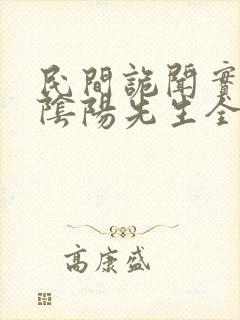 民間詭聞實
陰陽先生全
高康盛